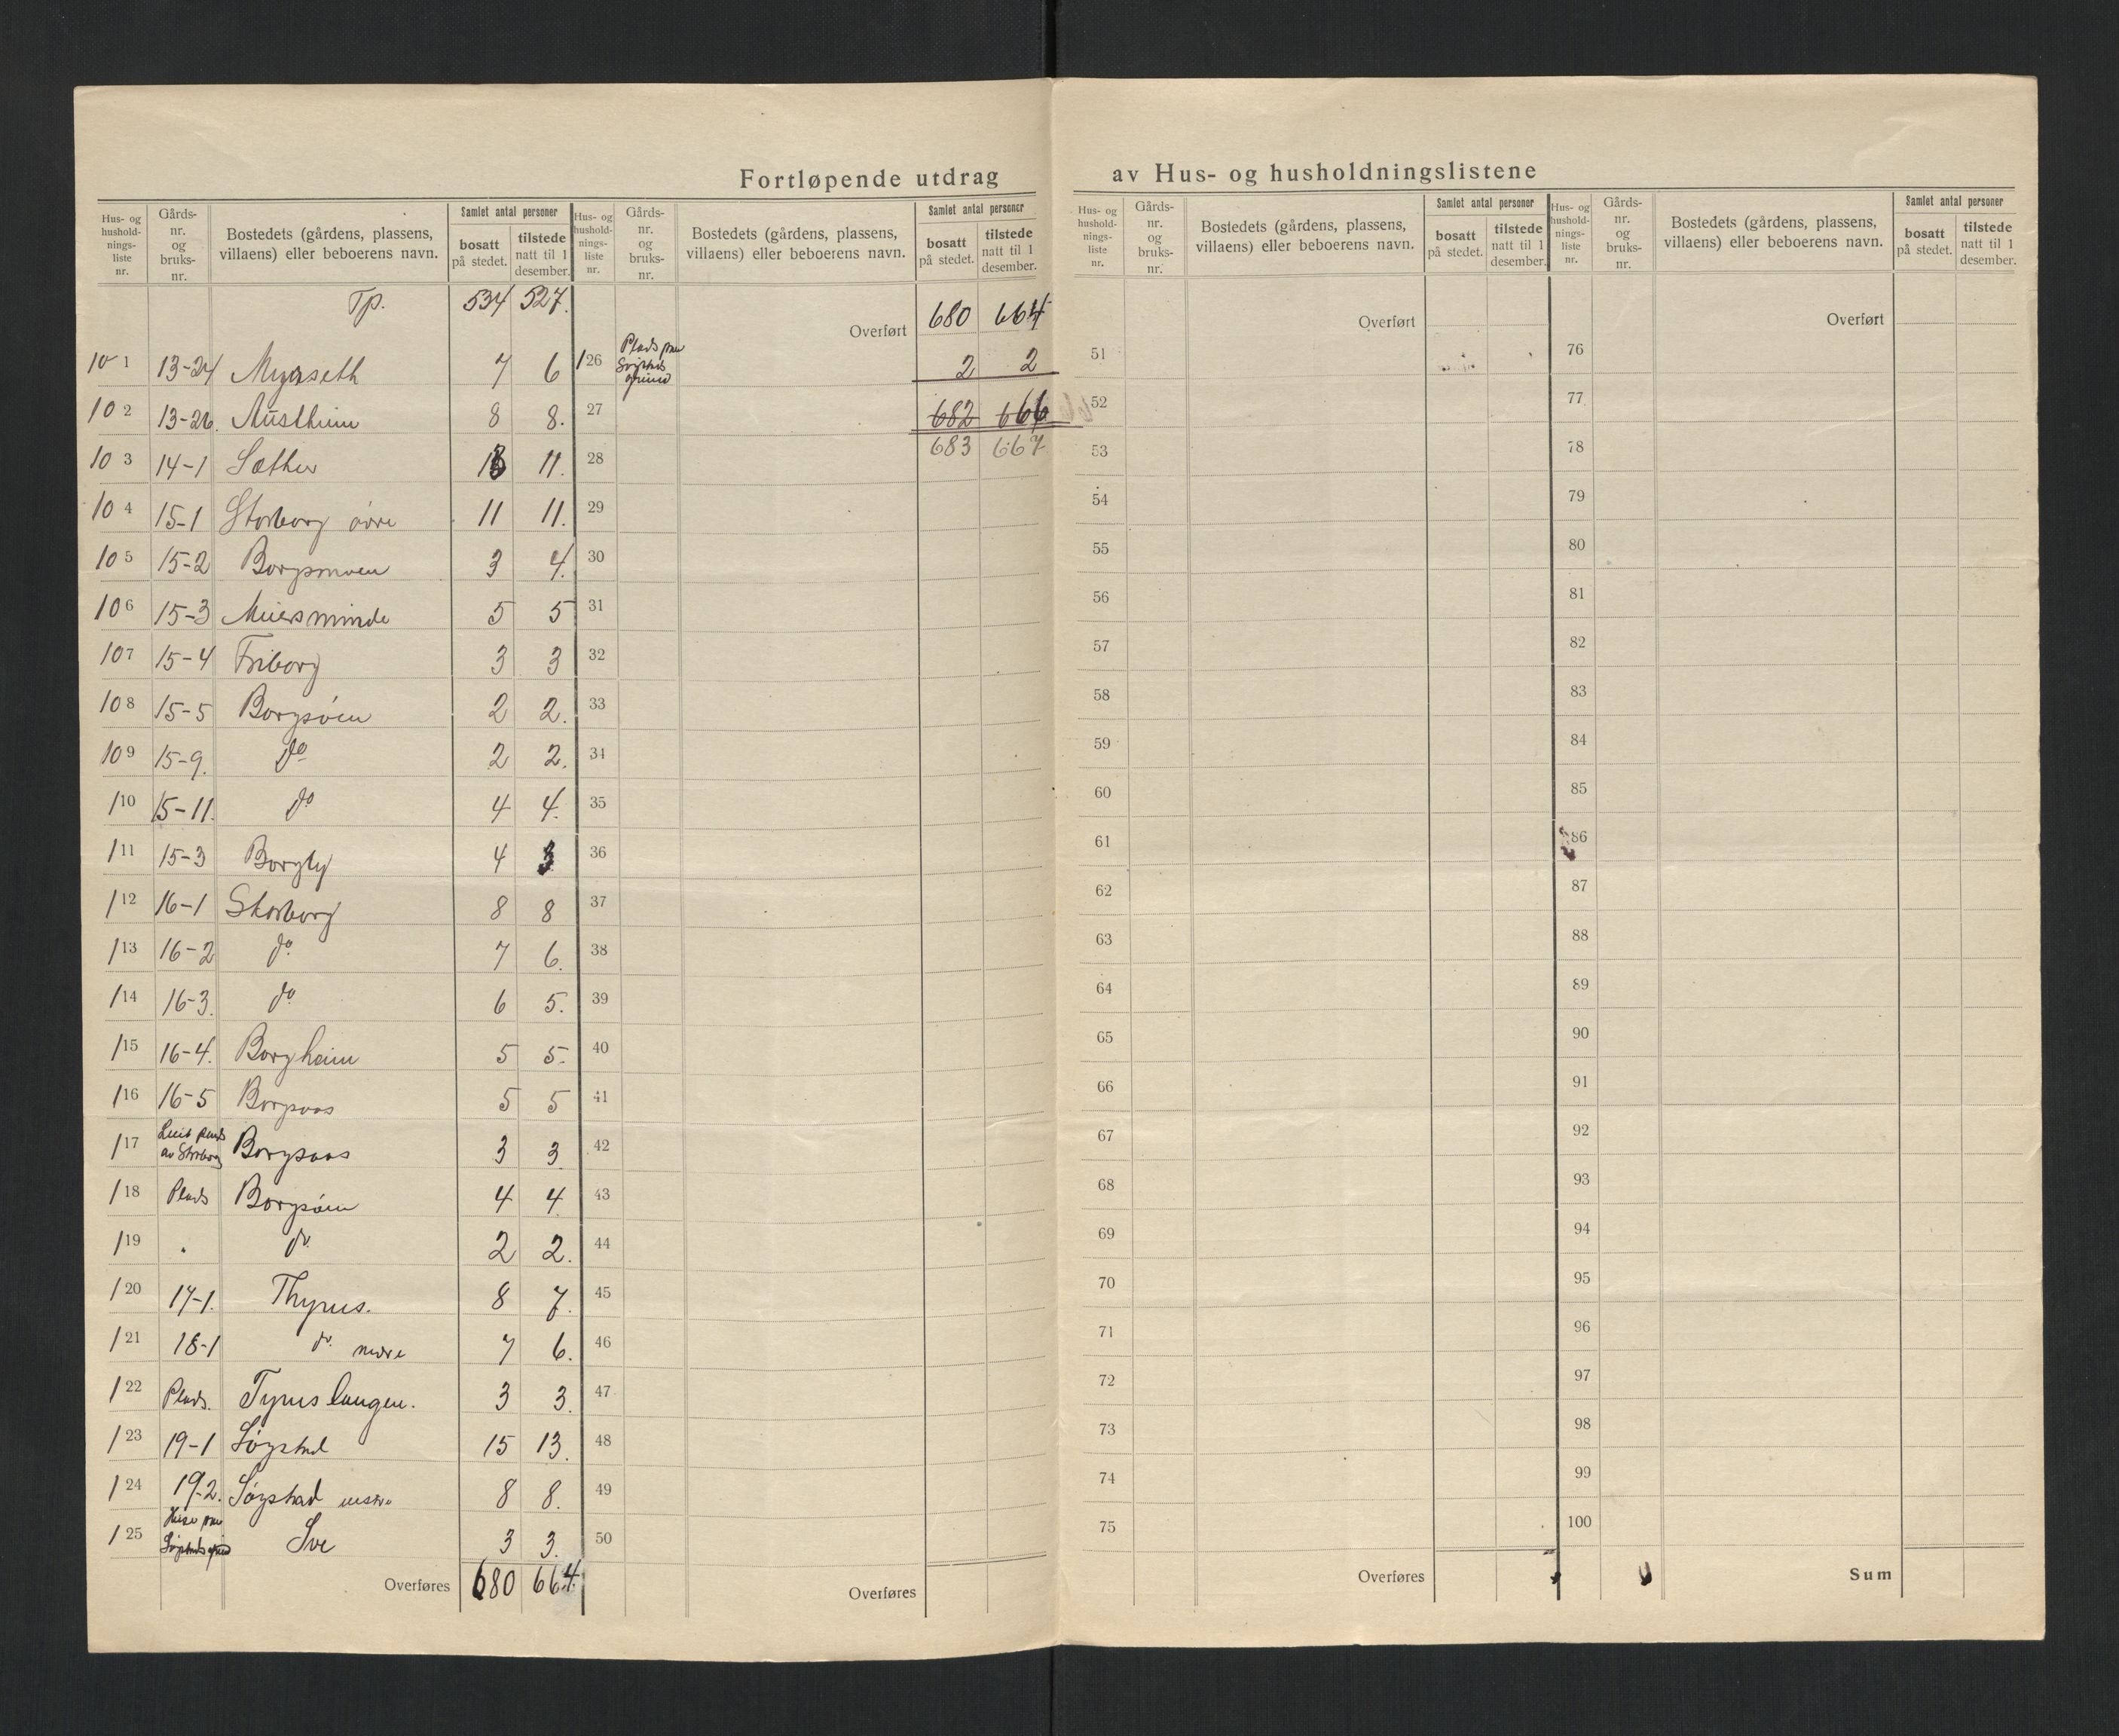 Fortløpende utdrag av Hus- og husholdningslistene
Hus- og hushold-nings-liste nr. Gårds-nr. og bruks-nr. Bostedets (gårdens, plassens, villaens) eller beboerens navn. Samlet antal personer bosatt på stedet. tilstede natt til 1 desember.
Tp. 534 527.
101 13-24 Myrseth 7 6
102 13-26. Austheim 8 8.
103 14-1 Sæther 13 11.
104 15-1 Storborg övre 11 11.
105 15-2 Borgsmoen 3 4.
106 15-3 Meiersminde 5 5
107 15-4 Friborg 3 3
108 15-5 Borgsöien 2 2.
109 15-9. do 2 2.
110 15-11. do 4 4.
111 15-3 Borgly 4 3
112 16-1 Storborg 8 8
113 16-2 do 7 6.
114 16-3. do 6 5.
115 16-4. Borgheim 5 5.
116 16-5 Borgsaas 5 5
117 av Storborg Borgsaas 3 3.
118 Plads Borgsöien 4 4.
119 . do. 2 2.
120 17-1. Thyrus. 8 7.
121 18-1 do. nedre 7 6.
122 Plads. Tyruslangen. 3 3.
123 19-1 Sögstad 15 13.
124 19-2. Sögstad 8 8.
125 3 3.
Overføres 680 664.
Hus- og hushold-nings-liste nr. Gårds-nr. og bruks-nr. Bostedets (gårdens, plassens, villaens) eller beboerens navn. Samlet antal personer bosatt på stedet. tilstede natt til 1 desember.
Overført 680 664
126 Plads 2 2
27 682 666
28 683 667
29
30
31
32
33
34
35
36
37
38
39
40
41
42
43
44
45
46
47
48
49
50
Overføres
Hus- og hushold-nings-liste nr. Gårds-nr. og bruks-nr. Bostedets (gårdens, plassens, villaens) eller beboerens navn. Samlet antal personer bosatt på stedet. tilstede natt til 1 desember.
Overført
51
52
53
54
55
56
57
58
59
60
61
62
63
64
65
66
67
68
69
70
71
72
73
74
75
Overføres
Hus- og hushold-nings-liste nr. Gårds-nr. og bruks-nr. Bostedets (gårdens, plassens, villaens) eller beboerens navn. Samlet antal personer bosatt på stedet. tilstede natt til 1 desember.
Overført
76
77
78
79
80
81
82
83
84
85
86
87
88
89
90
91
92
93
94
95
96
97
98
99
100
Sum